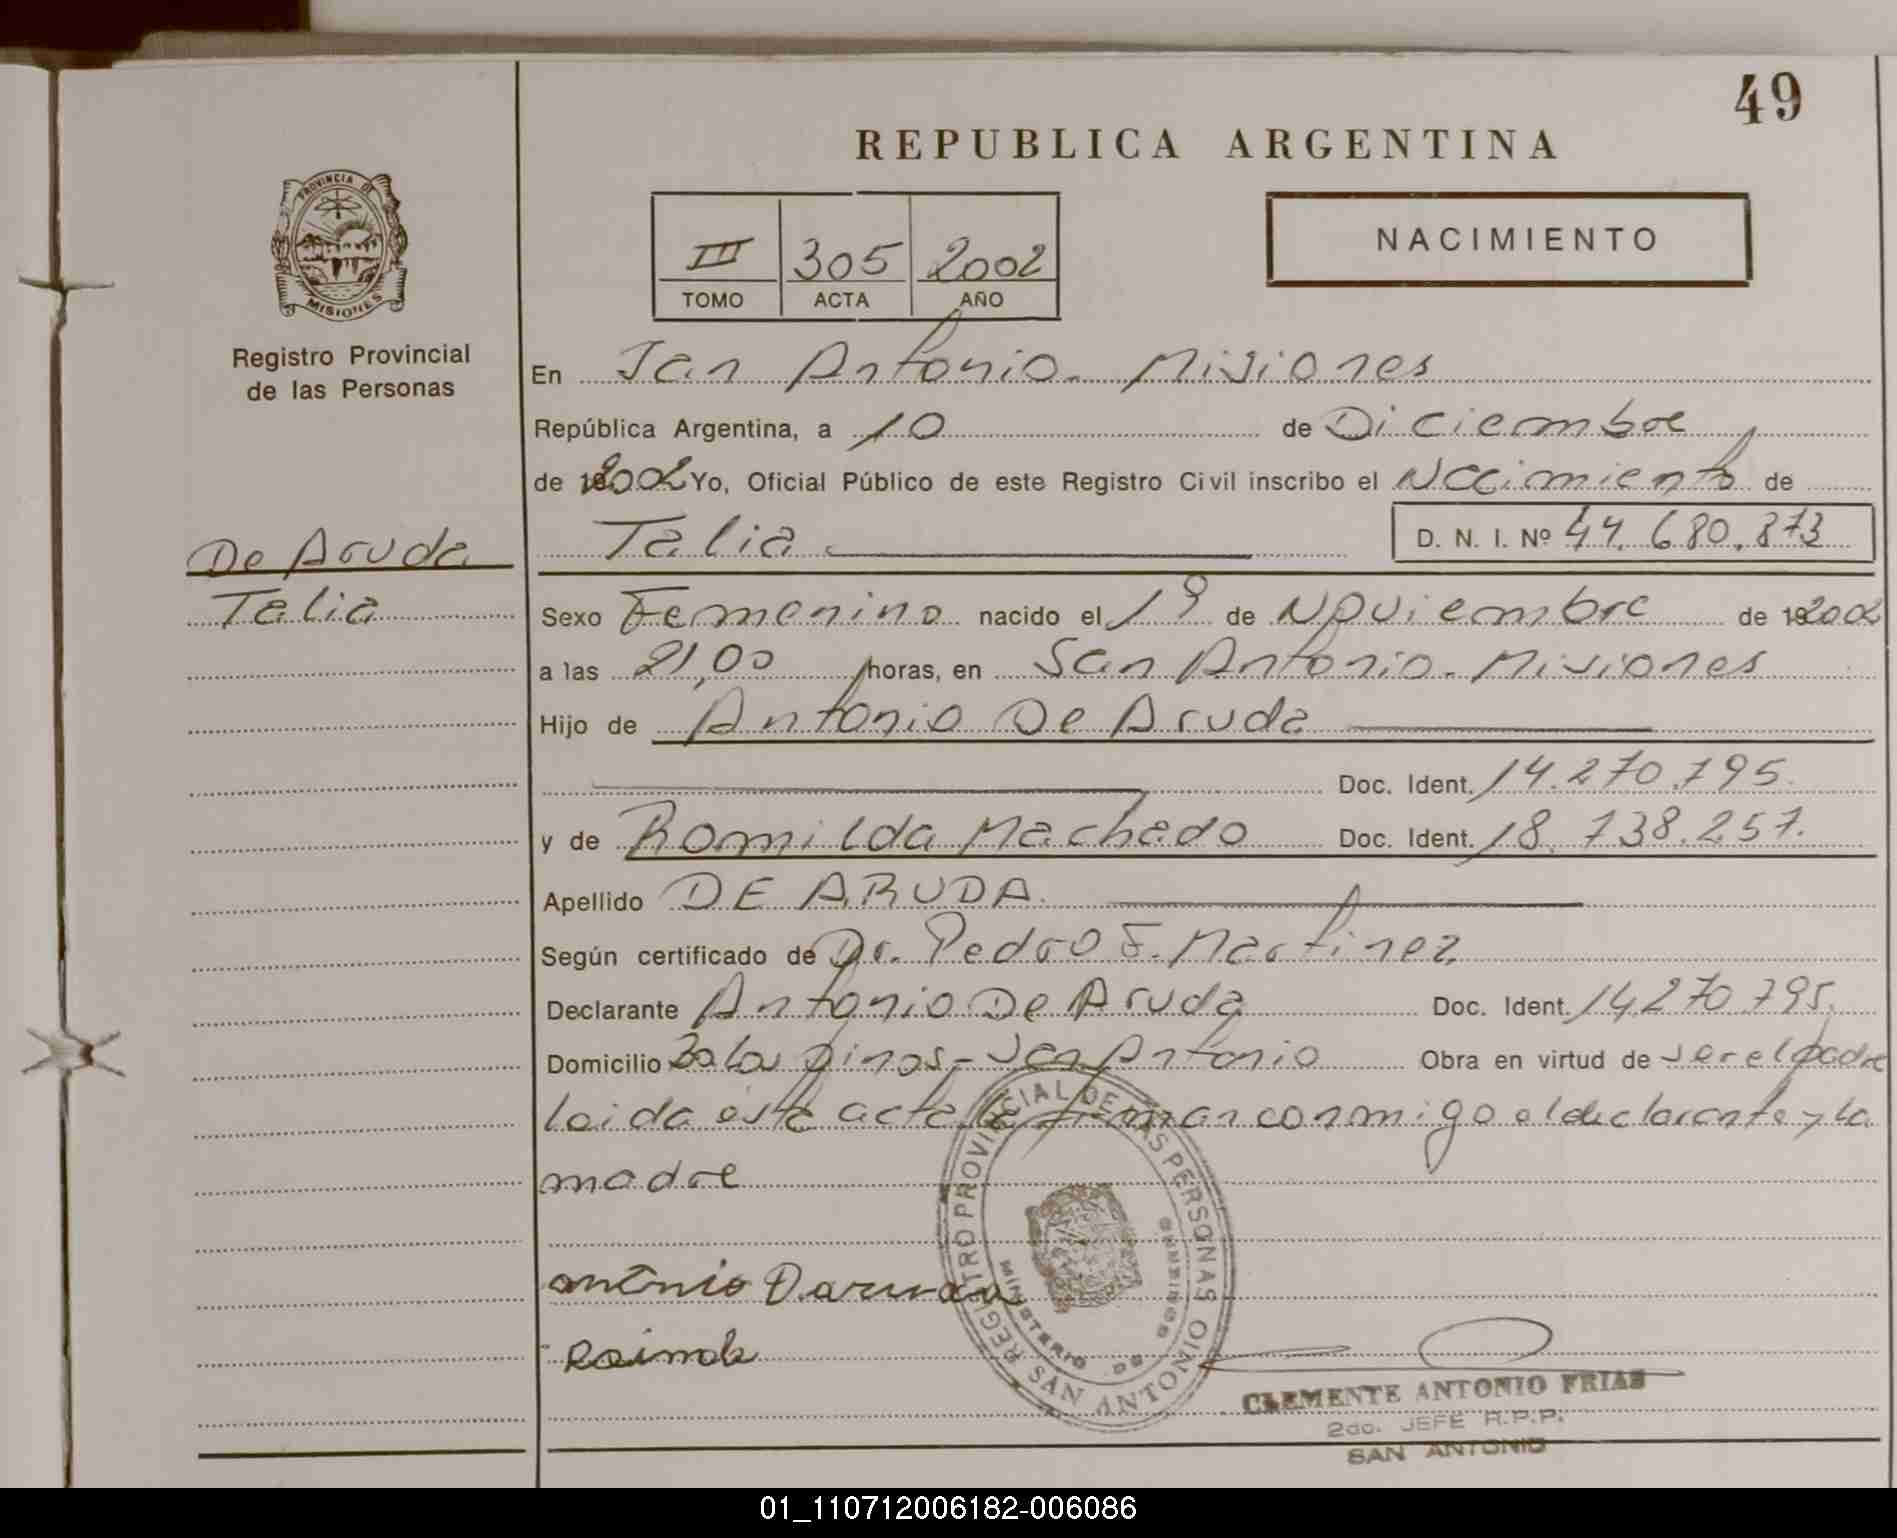 49
REPUBLICA ARGENTINA
PROVINCIA DE
MISIONES
Registro Provincial
de las Personas
III 305 2002
TOMO ACTA AÑO
NACIMIENTO
En San Antonio - Misiones
República Argentina, a 10 de Diciembre
de 2002 Yo, Oficial Público de este Registro Civil inscribo el Nacimiento de
Talia D. N. I. Nº 44.680.873
De Aruda
Talia
Sexo Femenino nacido el 1º de Noviembre de 2002
a las 21,00 horas, en San Antonio - Misiones
Hijo de Antonio De Aruda
Doc. Ident. 14.270.795.
y de Romilda Machado Doc. Ident. 18.738.257.
Apellido DE ARUDA
Según certificado de Dr. Pedro F. Martinez
Declarante Antonio De Aruda Doc. Ident. 14.270.795.
Domicilio Bo Los pinos - San Antonio Obra en virtud de ser el padre
leida esta acta la firman conmigo el declarante y la
madre
REGISTRO PROVINCIAL DE LAS PERSONAS
MINISTERIO DE GOBIERNO
SAN ANTONIO
CLEMENTE ANTONIO FRIAS
2do. JEFE R.P.P.
SAN ANTONIO
01_110712006182-006086